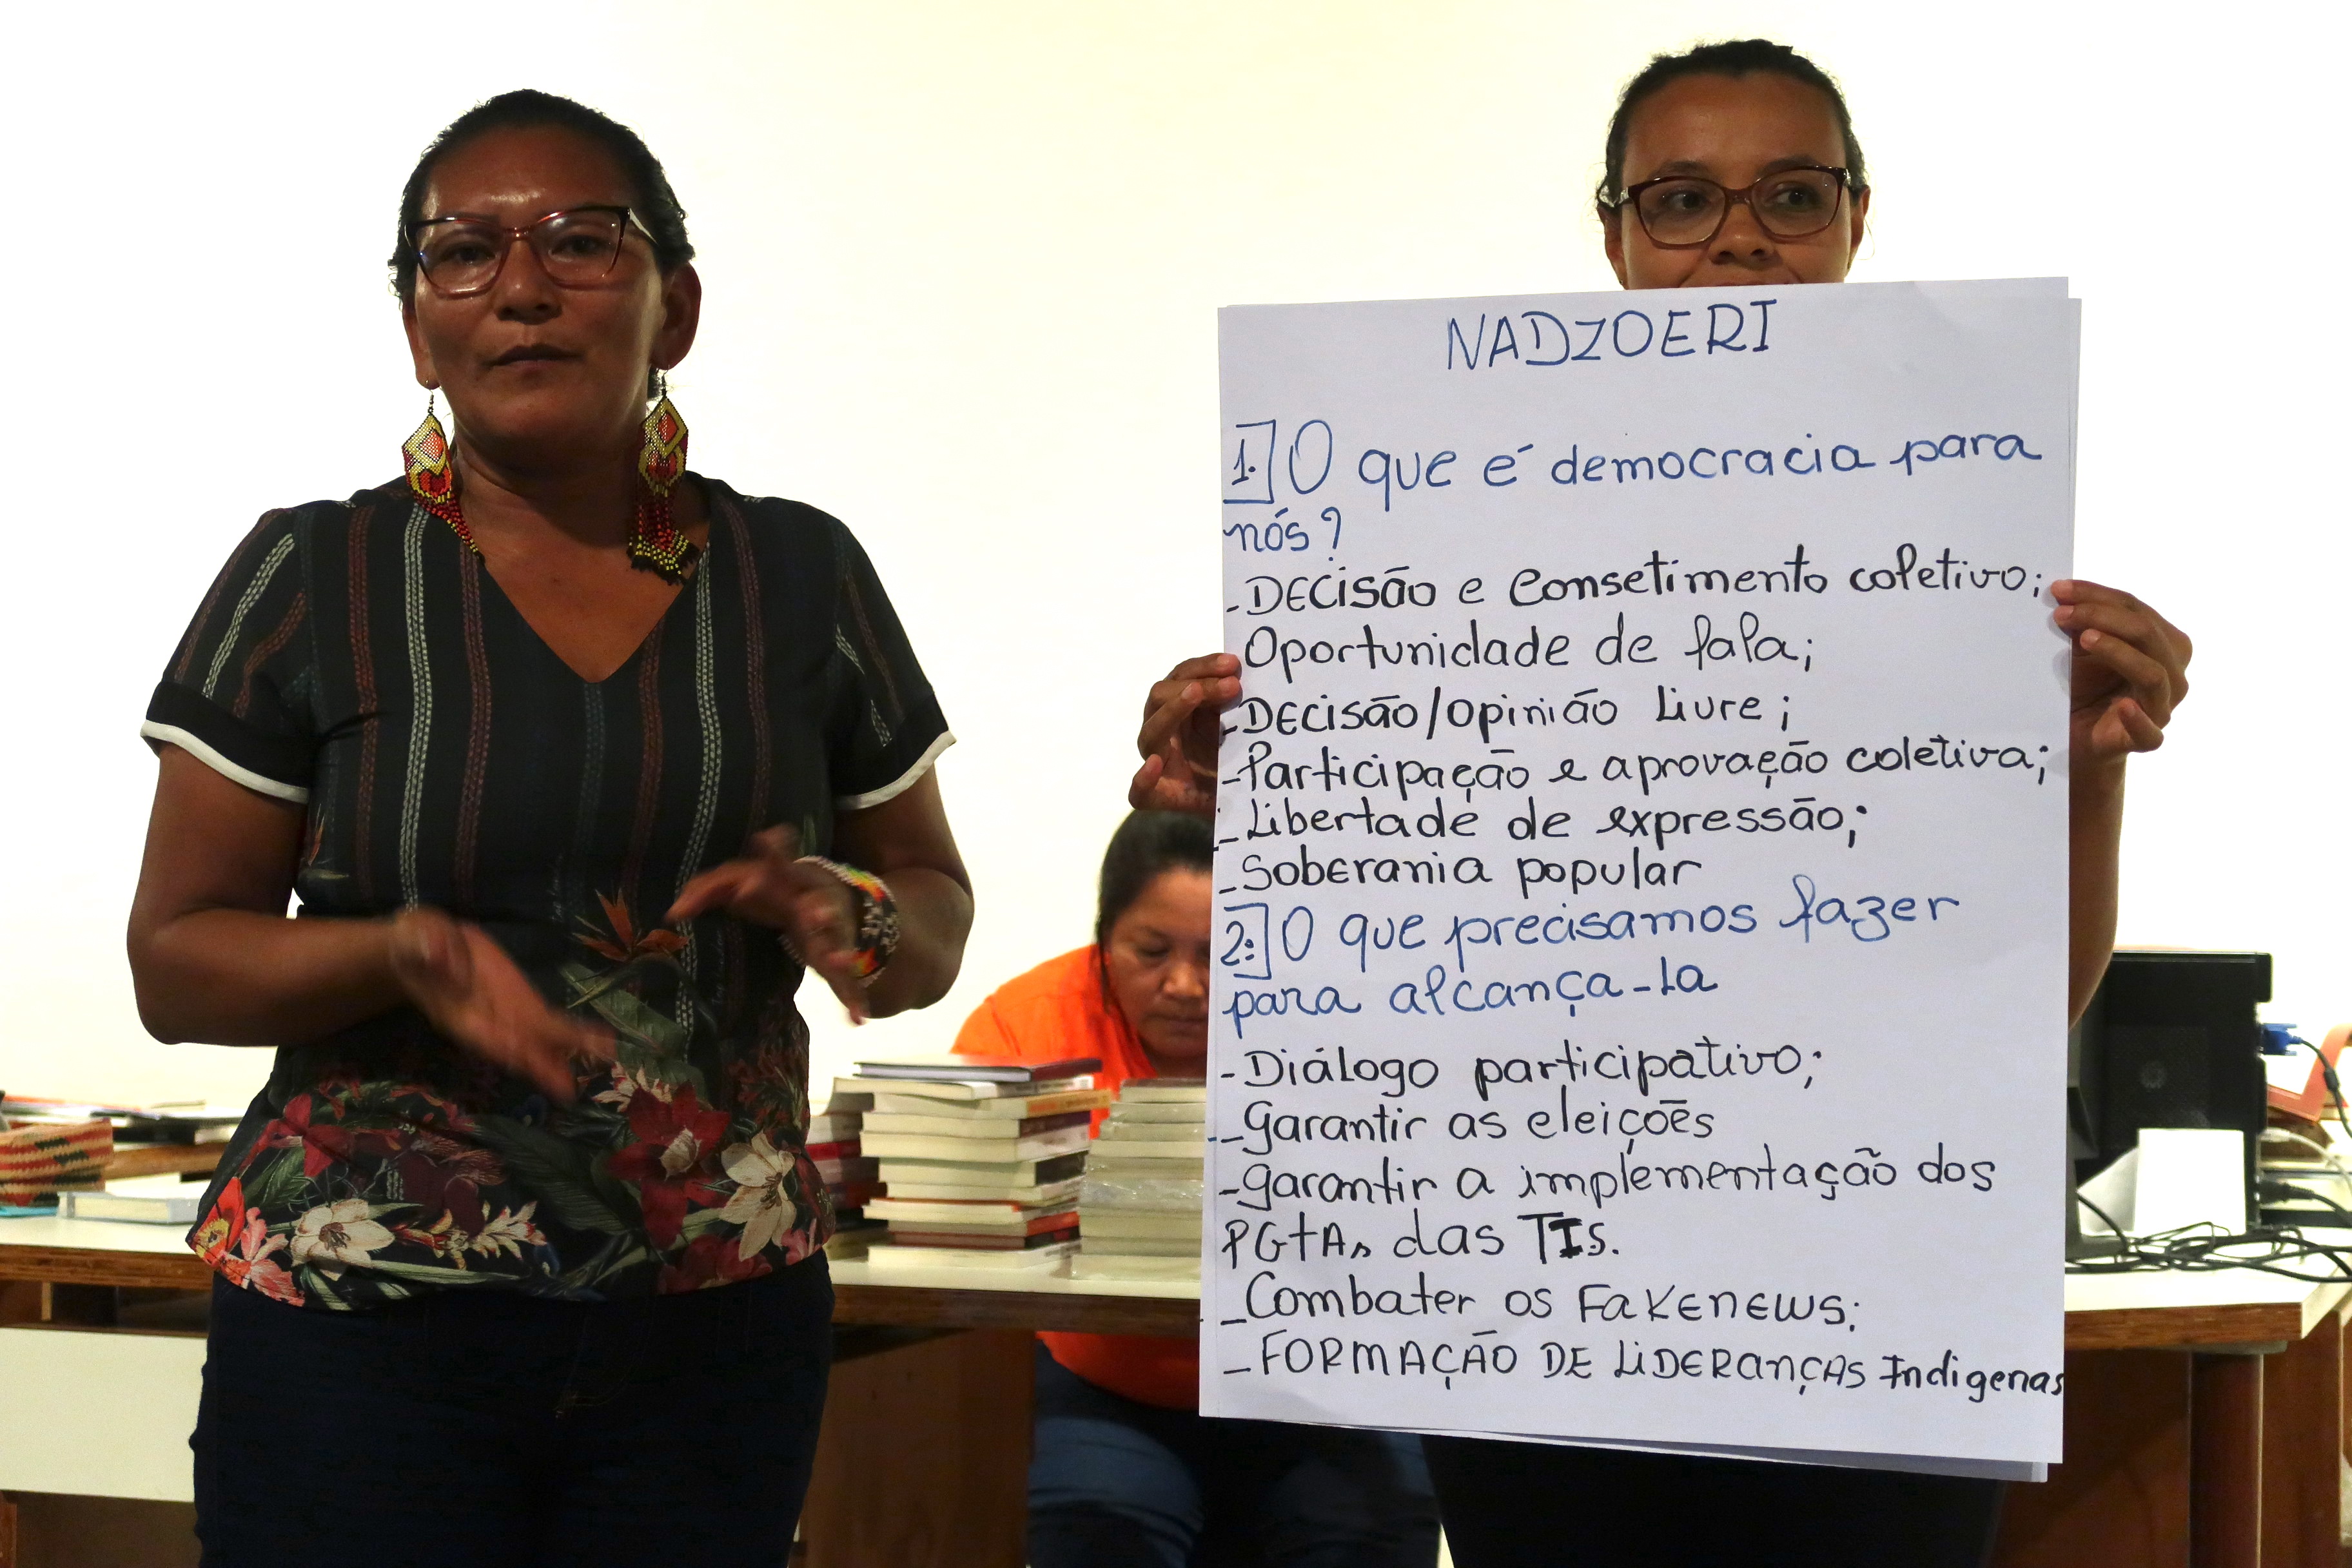 NADZOERI
1. O que é democracia para
nós?
- DECISÃO e consetimento coletivo;
Oportunidade de fala;
- DECISÃO/Opinião Livre;
- Participação e aprovação coletiva;
- Libertade de expressão;
- Soberania popular
2. O que precisamos fazer
para alcança-la
- Diálogo participativo;
- Garantir as eleições
- garantir a implementação dos
PGTAs das TIs.
- Combater os FaKENEWS;
- FORMAÇÃO DE LiDERAnÇAS Indigenas